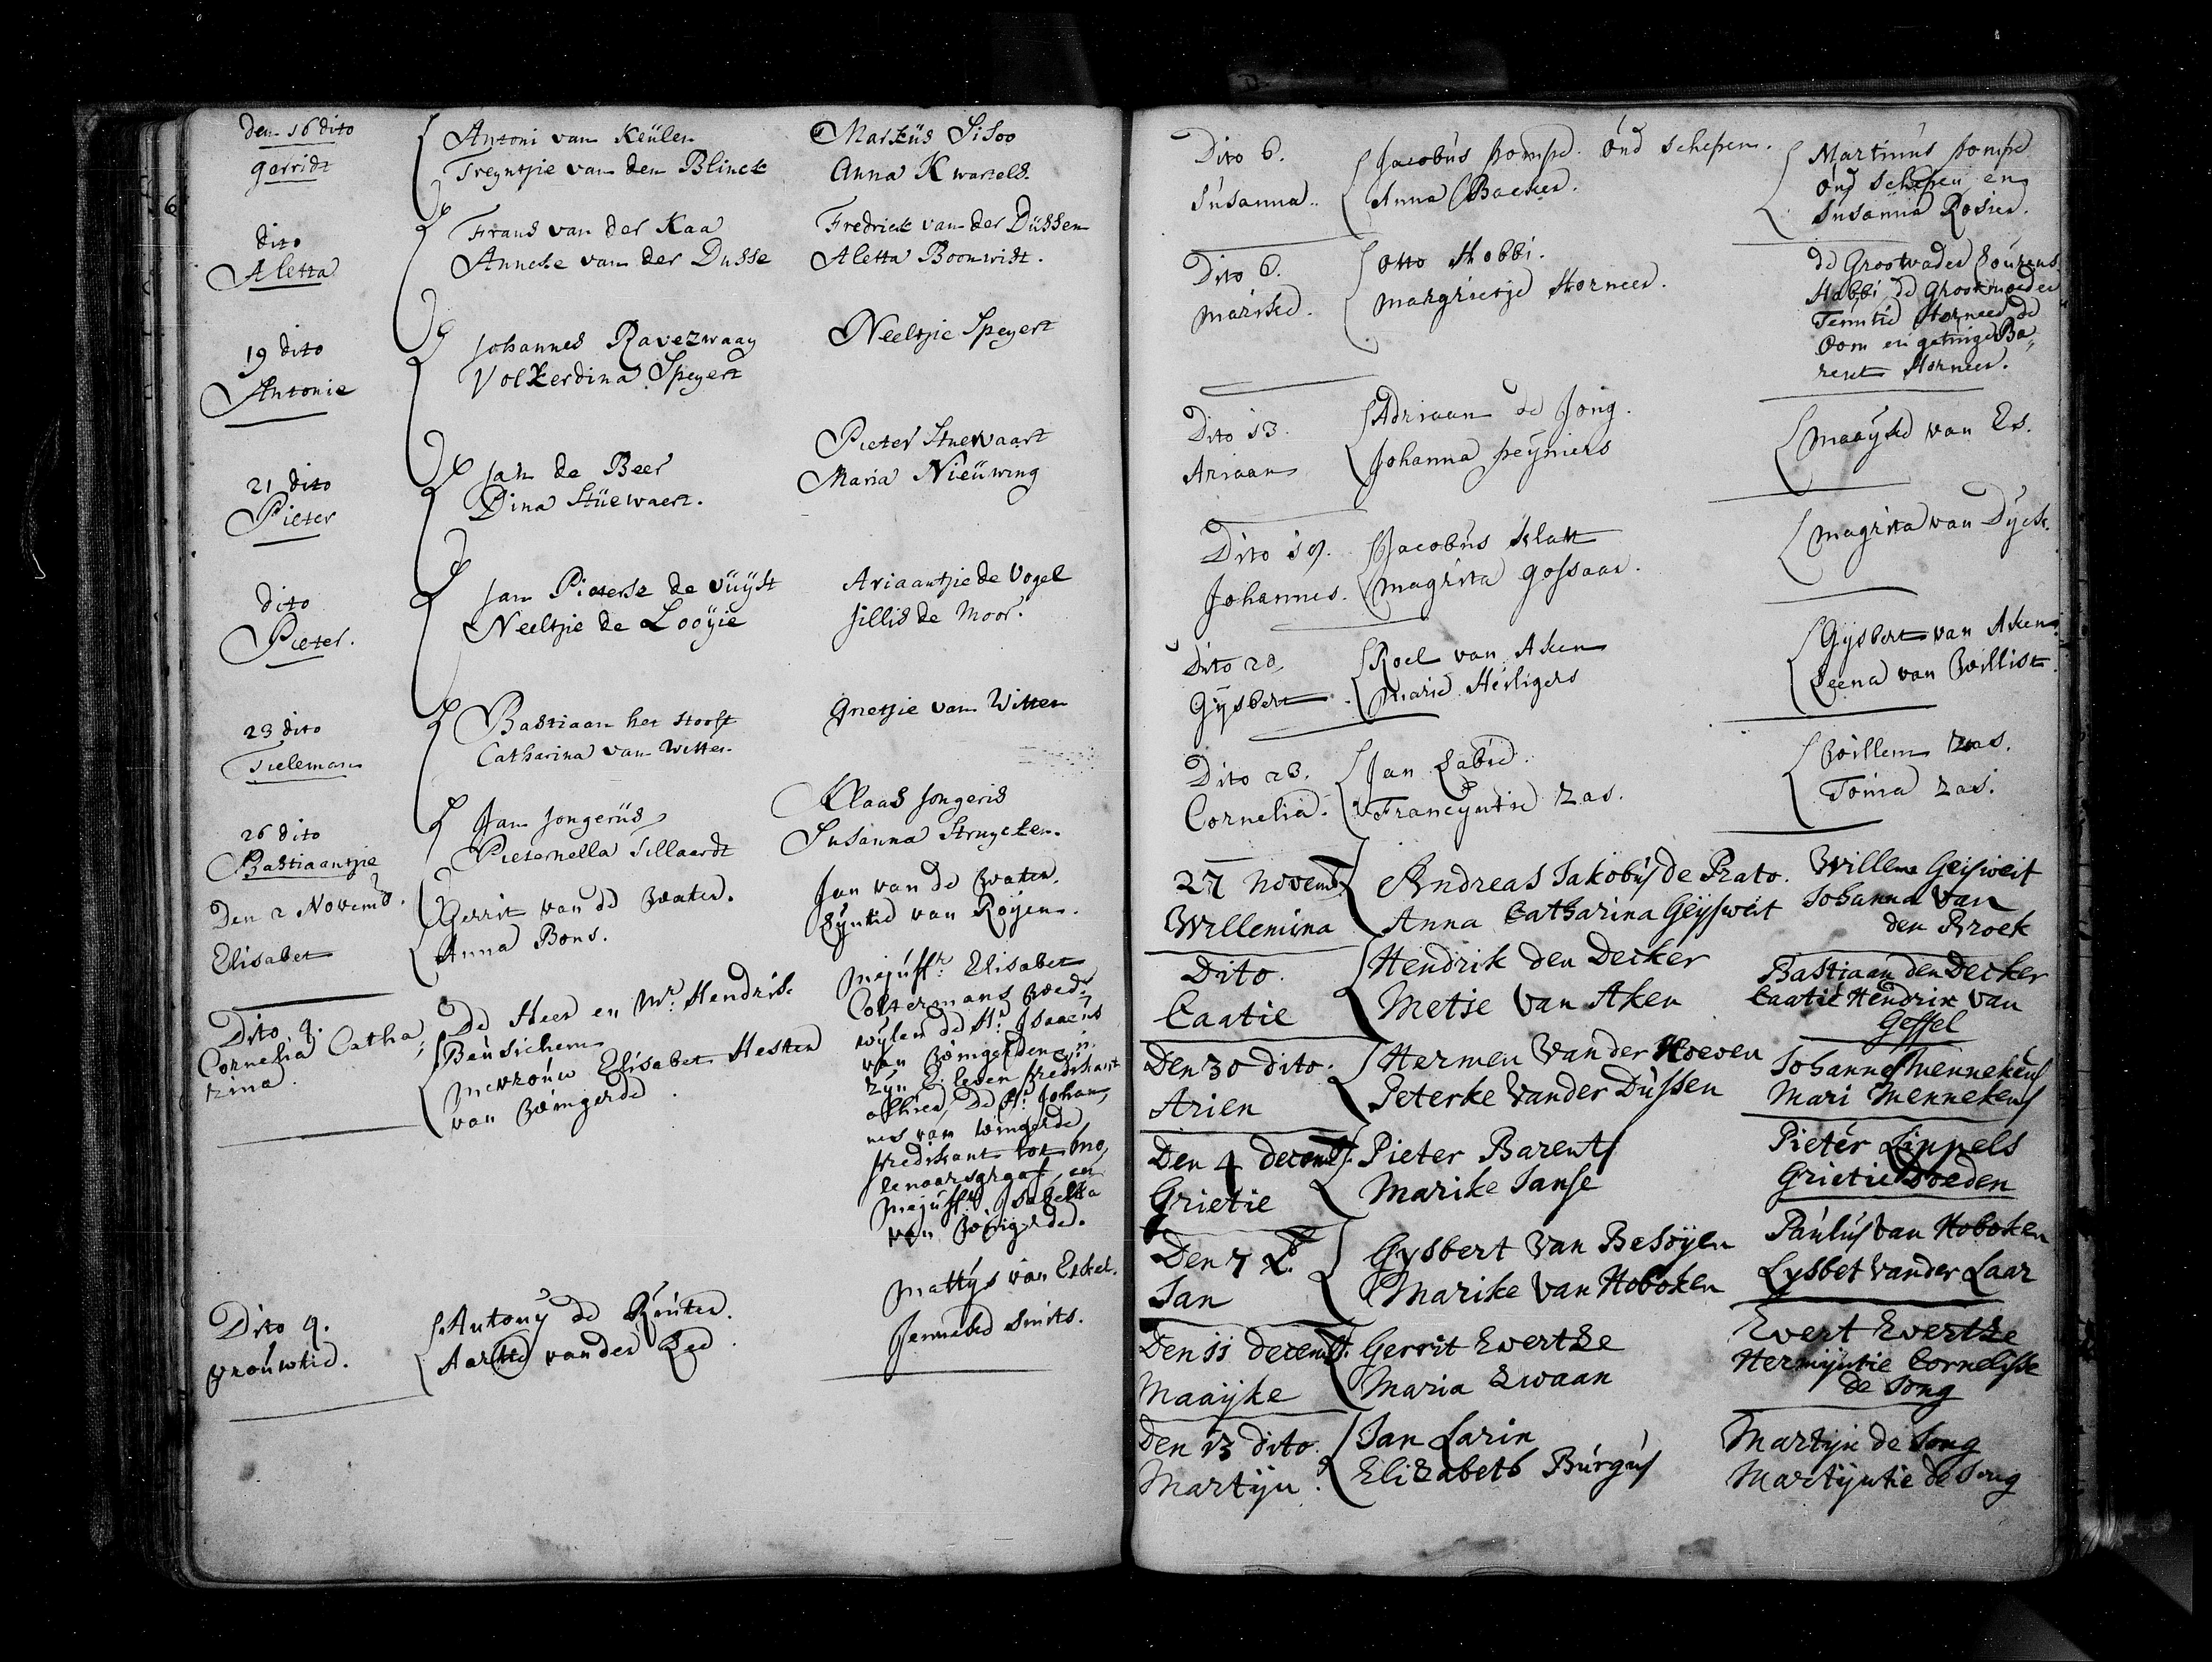 den 16 dito
gerridt
Antoni van Keülen
Treyntjie van den Blinck
Markus Sisoo
Anna Kwarels.
dito
Aletta
Frans van der Kaa
Anneke van der Dusse
Fredrick van der Düssen
Aletta Boonwidt.
19 dito
Antonie
Johannes Ravezwaay
Volkerdina Speyert
Neeltjie Speyert
21 dito
Pieter
Jan de Beer
Dina Stüewaert.
Pieter Stuewaart
Maria Nieüwing
dito
Pieter.
Jan Pieterse de Vüijst
Neeltjie de Looyie
Ariaantjie de Vogel
Jillis de Moor.
23 dito
Tieleman
Bastiaan het Hooft
Catharina van Witten
Grietjie van Witten
26 dito
Bastiaantjie
Jan Jongerius
Pieternella Tillaardt
Klaas Jongeris
Susanna Struycken.
Den 2 Novemb.
Elisabet
Gerrit van de Water.
Anna Bons.
Jan van de Water.
Syntie van Royen.
Dito 9.
Cornelia Catha,
rina.
De Heer en Mr. Hendrik
Beusichem
Mevrouw Elisabet Hester
van Wingerde.
Mejuffr. Elisabet
Coltermans Wedu
wylen de Hr. Isaacus
van Wingerden in
zyn E. leven predikant
alhier, De Hr. Johan,
nes van Wingerde
predikant tot Mo,
lenaarsgraaf, en
Mejuffr. Isabella
van Wingerde.
Dito 9.
Vrouwtie.
Antony de Ruiter.
Aartie van der Lee.
Mattys van Eckel.
Jenneke Smits.
Dito 6.
Susanna.
Jacobus Pompe. Oud Schepen.
Anna Backer.
Martinus Pompe
Oud Schepen en
Susanna Rosier.
Dito 6.
Marike.
Otto Hobbi.
Margrietje Horneer.
de Grootvader Lourens
Hobbi de Grootmoeder
Teuntie Horneer de
Oom en getuige Ba,
rent Horneer.
Dito 13.
Ariaan
Adriaan de Jong.
Johanna Peyniers
Maayke van Es.
Dito 19.
Johannes.
Jacobus Klatt
Magrita Gossaar.
Magrita van Dyck.
Dito 20
Gysbert
Roel van Aken
Marie Heiligers
Gysbert van Aken
Leena van Willist
Dito 23.
Cornelia.
Jan Labie.
Francyntie Zas.
Willem Zas.
Tonia Zas.
27 Novemb.
Willemina
Andreas Jakobus de Prato.
Anna Catharina Geisweit
Willem Geisweit
Johanna Van
den Broek
Dito.
Caatie
Hendrik den Decker
Metje Van Aken
Bastiaan den Decker
Caatie Hendrix Van
Geffel
Den 30 dito.
Arien
Hermen Van der Hoeven
Peterke Vander Dussen
Johannes Mennekens
Mari Mennekens
Den 4 decemb.
Grietie
Pieter Barents
Marike Janse
Pieter Lippels
Grietie Broeden
Den 7 do.
Jan
Gysbert Van Besoyen
Marike Van Hoboken
Paulus Van Hoboken
Lysbet Vander Laar
Den 11 decemb.
Maaijke
Gerrit Evertze
Maria Zwaan
Evert Evertze
Hermijntie Cornelisse
de Jong
Den 13 dito.
Martijn.
Jan Larin
Elizabeth Burgus
Martijn de Jong
Martijntie de Jong